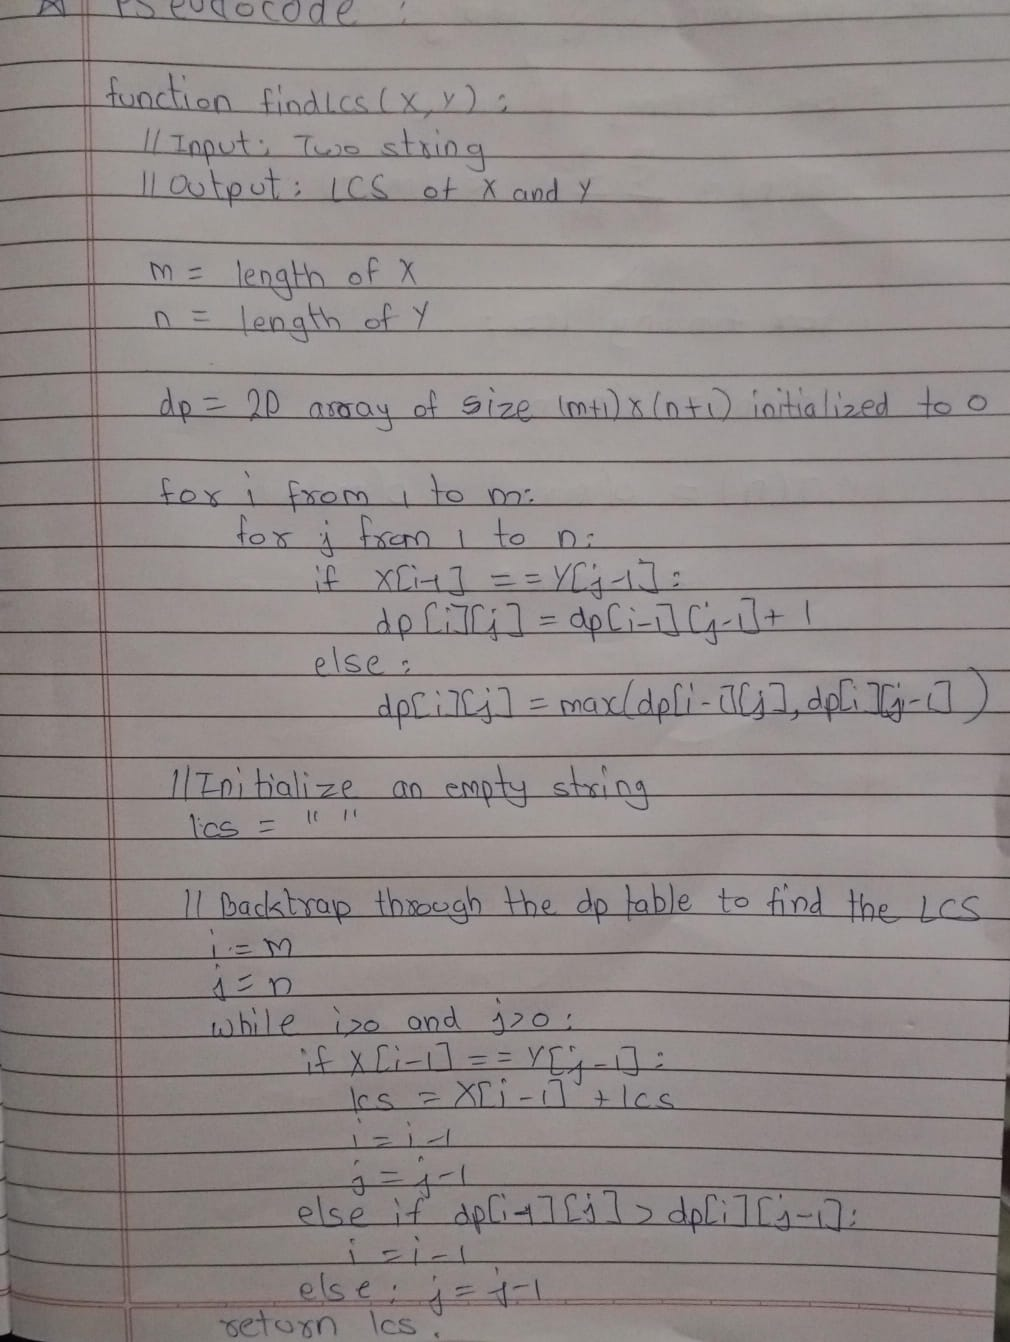 Pseudocode :
function findlcs (X, Y) :
// Input : Two string
// Output : LCS of X and Y
m = length of X
n = length of Y
dp = 2D array of size (m+1) x (n+1) initialized to 0
for i from 1 to m:
for j from 1 to n:
if X[i-1] == Y[j-1]:
dp[i][j] = dp[i-1][j-1] + 1
else :
dp[i][j] = max(dp[i-1][j], dp[i][j-1])
// Initialize an empty string
lcs = " "
// Backtrap through the dp table to find the LCS
i = m
j = n
while i>0 and j>0 :
if X[i-1] == Y[j-1] :
lcs = X[i-1] + lcs
i = i-1
j = j-1
else if dp[i-1][j] > dp[i][j-1]:
i = i-1
else : j = j-1
return lcs.